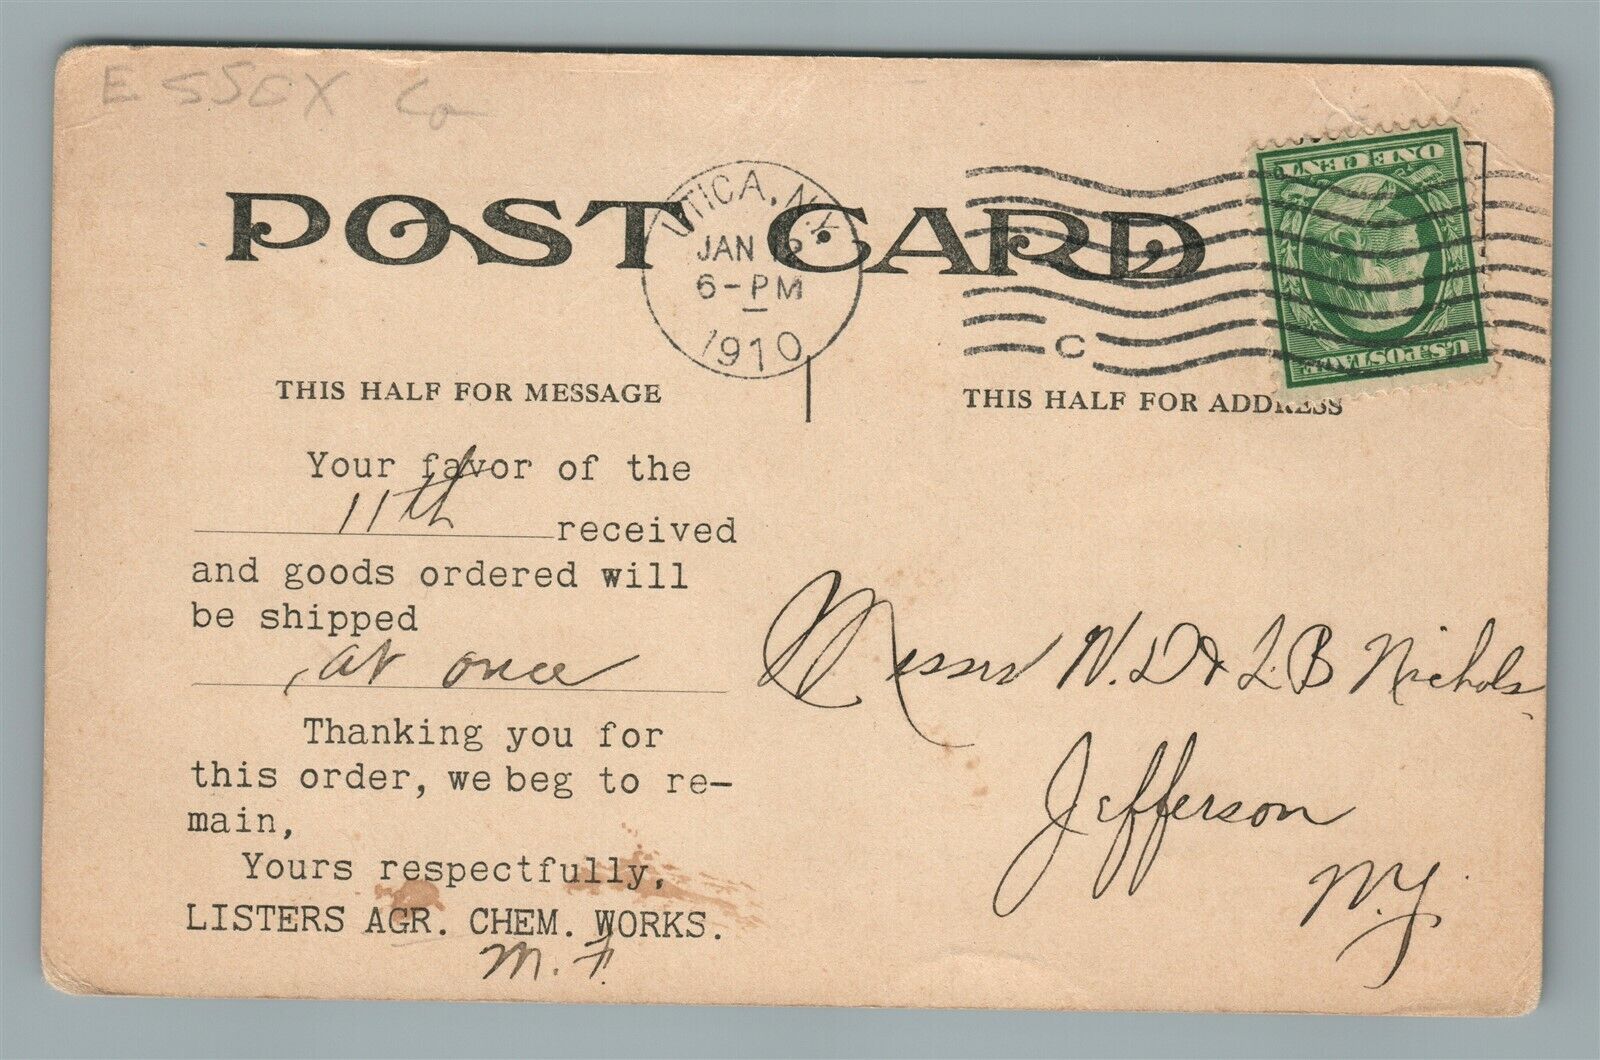 ESSEX Co
POST CARD
UTICA, N.Y.
JAN 12
6-PM
1910
C
ONE CENT
U.S. POSTAGE
THIS HALF FOR MESSAGE
THIS HALF FOR ADDRESS
Your favor of the
11th received
and goods ordered will
be shipped
at once
Thanking you for
this order, we beg to re-
main,
Yours respectfully,
LISTERS AGR. CHEM. WORKS.
M. F.
Messrs N. D & L. B Nichols,
Jefferson
N.Y.